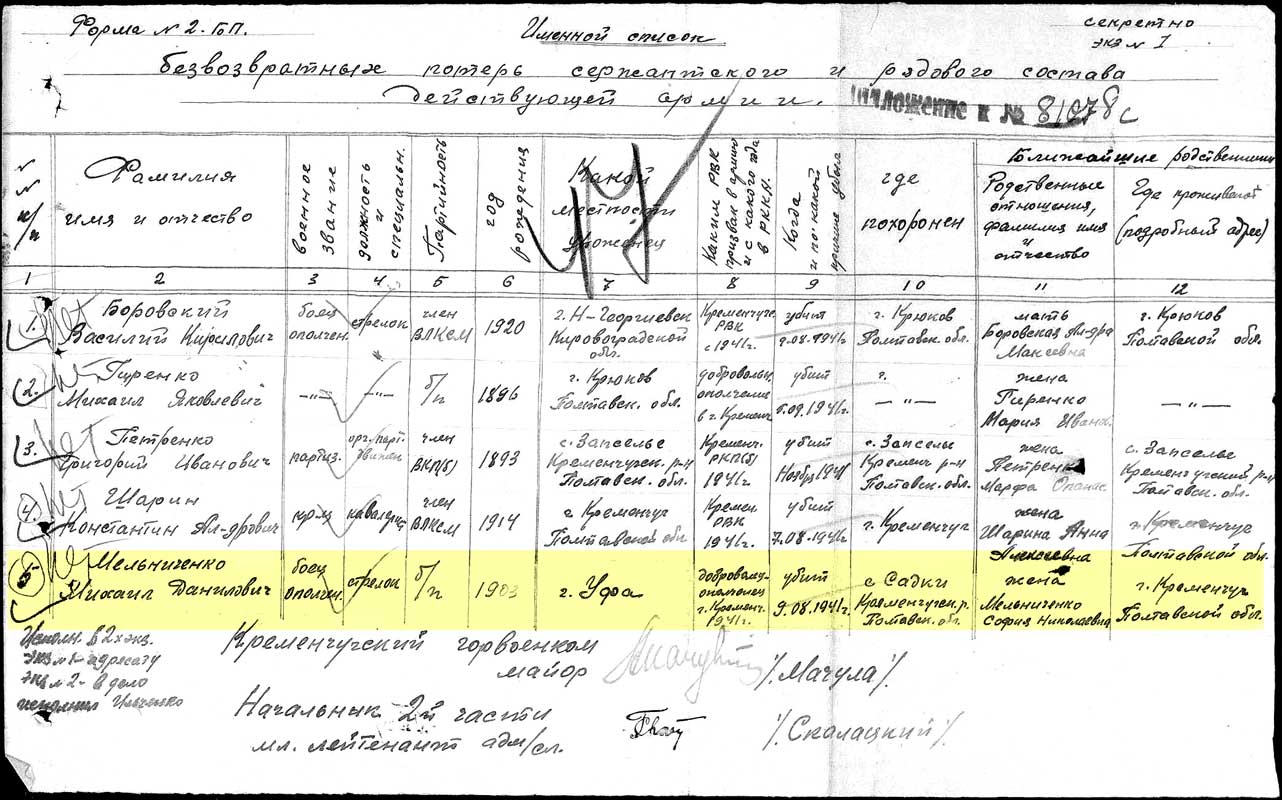 Форма № 2-БП.
Именной список
секретно
экз № 1
безвозвратных потерь сержантского и рядового состава
действующей армии.
Приложение к № 81078с
№№ п/п
Фамилия
имя и отчество
военное звание
должность и специальн.
Партийность
год рождения
Какой местности уроженец
Каким РВК призван в армию и с какого года в РККА
Когда и по какой причине убыл
где похоронен
Ближайшие родственники
Родственные отношения, фамилия имя и отчество
Где проживают (подробный адрес)
1 2 3 4 5 6 7 8 9 10 11 12
1. Боровский Василий Кирилович
боец ополчен.
стрелок
член ВЛКСМ
1920
г. Н-Георгиевск Кировоградской обл.
Кременчуг. РВК с 1941г.
убит 9.08.1941г
г. Крюков Полтавск. обл.
мать Боровская Ал-дра Моисеевна
г. Крюков Полтавской обл.
нет
2. Гиренко Михаил Яковлевич
—„—
—„—
б/п
1896
г. Крюков Полтавск. обл.
добровольн. ополчение в г. Кременч
убит .09.1941г.
г. —„—
жена Гиренко Мария Иванов.
—„—
нет
3. Петренко Григорий Иванович
партиз.
орг. парт. движен
член ВКП(б)
1893
с. Запселье Кременчугск. р-н Полтавск. обл.
Кременч. РКП(б) 1941г.
убит Ноябрь 1941
с. Запселье Кременч р-н Полтавск. обл.
жена Петренко Марфа Опанас
с. Запселье Кременчугский р-н Полтавск. обл.
нет
4. Шарин Константин Ал-дрович
кр-ц
кавалерис
член ВЛКСМ
1914
г Кременчуг Полтавской обл
Кремен РВК 1941г.
убит 7.08.1941г
г. Кременчуг
жена Шарина Анна Алексеевна
г. Кременчуг Полтавской обл.
нет
5 Мельниченко Михаил Данилович
боец ополчен.
стрелок
б/п
1903
г. Уфа
добровольц- ополченец г. Кременч. 1941г.
убит 9.08.1941г.
с Садки Кременчугск. р. Полтавск. обл.
жена Мельниченко София Николаевна
г. Кременчуг Полтавской обл.
нет
Исполн. в 2х экз.
экз № 1- адресату
экз № 2- в дело
исполнил Ильченко
Кременчугский горвоенком
майор /.Мачула/.
Начальник 2й части
мл. лейтенант адм/сл. /.Скалацкий/.